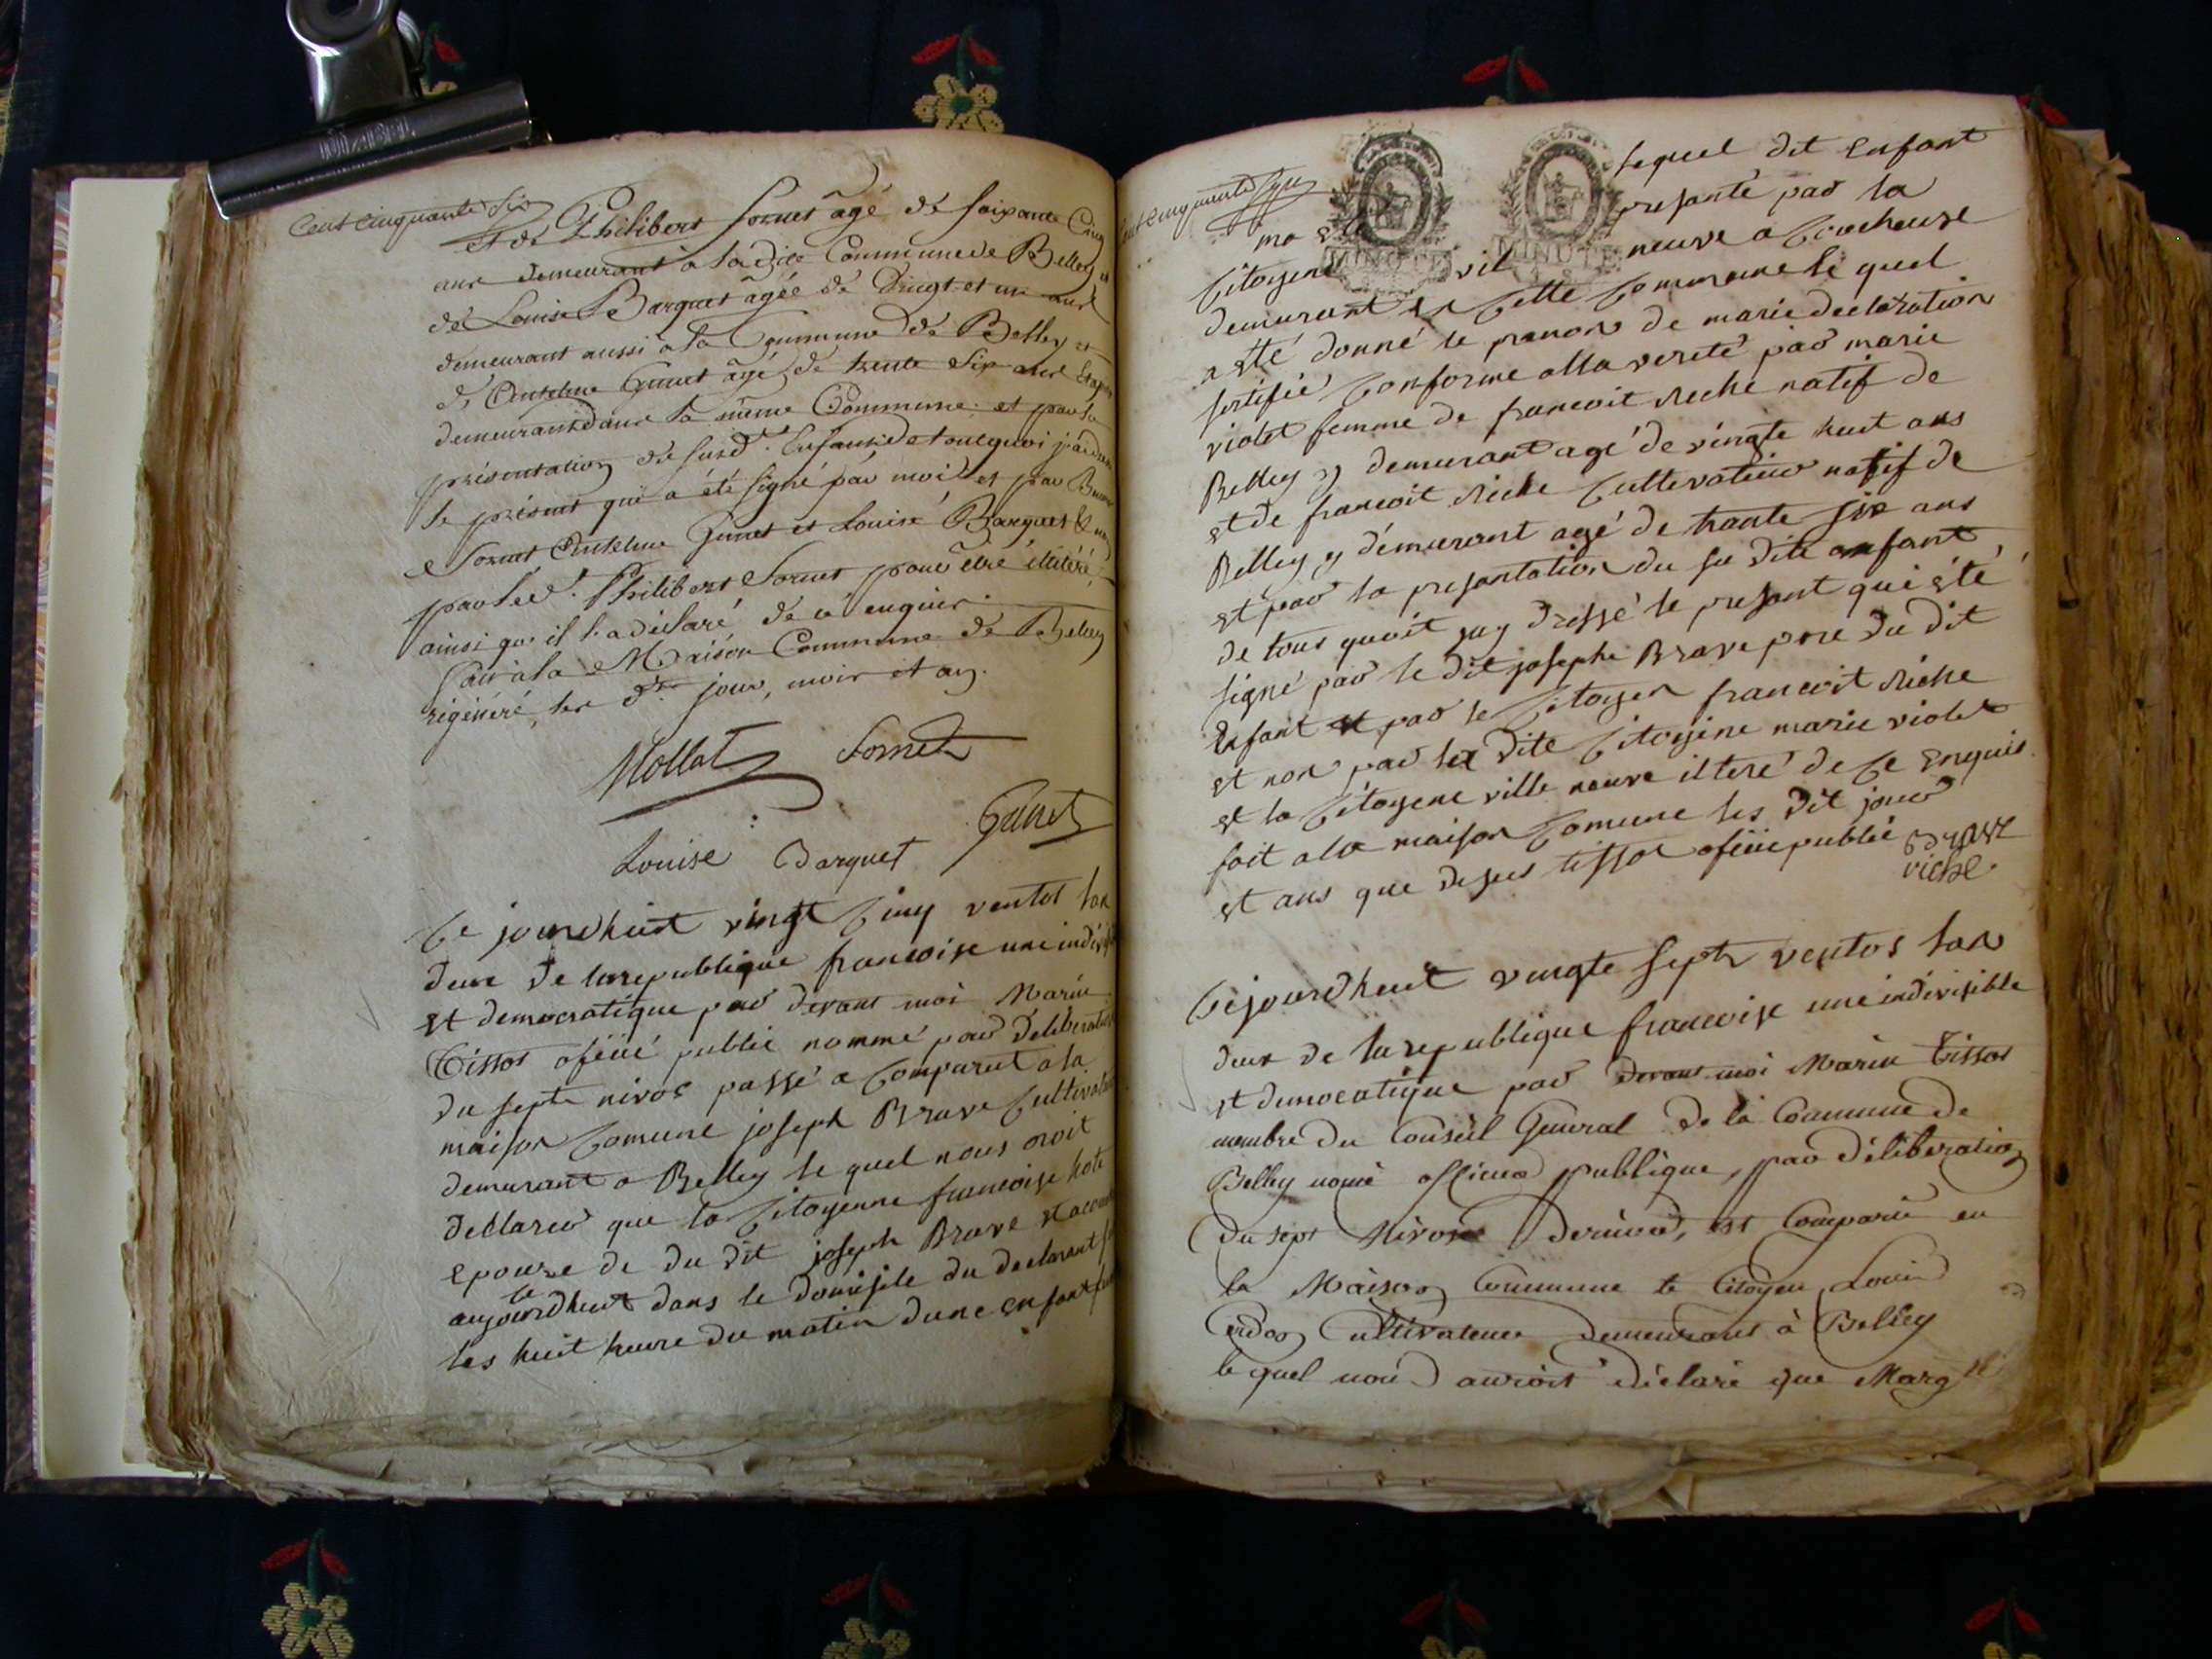 Cent cinquante six
et de Philibert Sornet âgé de soixante Cinq
ans demeurant à ladite Commune de Belley et
de Louise Barquet âgée de Vingt et un ans
demeurant aussi à la Commune de Belley et
d' Anthelme Gunet âgé de trente six ans
demeurant dans la même Commune et par la
présentation du susd. Enfant de tout quoi j'ai
le présent qui a été signé par moi et par
Sornet Anthelme Gunet et Louise Barquet & non
par led. Philibert Sornet pour être illitéré
ainsi qu' il l'a déclaré de ce enquis
fait à la Maison Commune de Belley
régénéré, les d. jour, mois et an.
Mollat Sornet
Gunet
Louise Barquet
Ce jourdhuit vingt Cinq ventos lan
deux de la republique francoise une
et democratique par devant moi Marin
Tissot publié nommé par
du septe nivos passé a Comparut a la
maison Comune joseph Brave
demurant a Belley le quel nous oroit
declareu que la Citoyenne francoise
epouze de du dit joseph Brave et
aujourdhuit dans le domisile du declarant
les huit heure du matin dune enfant
lequel dit enfant
presanté par la
Citoyene neuve a
demurant en Cette Commune le quel
a été donné le prenon de marie declaration
sertifié Conforme alla verité par marie
violet femme de francoit Riche natif de
Belley y demurant agé de vingte huit ans
et de francoit Riche Cultevateur natif de
Belley y démurant agé de trante six ans
et par la presantation du su dite anfant
de tous quoit jay dressé le presant qui été
signé par le dit josephe Brave pere du dit
enfant et par le Citoyen francoit Riche
et non par la dite Citoyene marie violet
et la Citoyene ville neuve iltere de Ce enquis
fait a la maison Comune les dit jour
et ans que desus tissot publié
riche
Cejourdhuit vingte septe ventos lan
deux de la republique francoise une indivisible
et par devant moi Marin Tissot
membre du Conseil General de la Commune de
Belley nomé officier publique, par déliberation
du sept Nivose dernier, est Comparu en
la Maison Commune le Citoyen Louis
Cultivateur demeurant à Belley
le quel nous auroit déclaré que